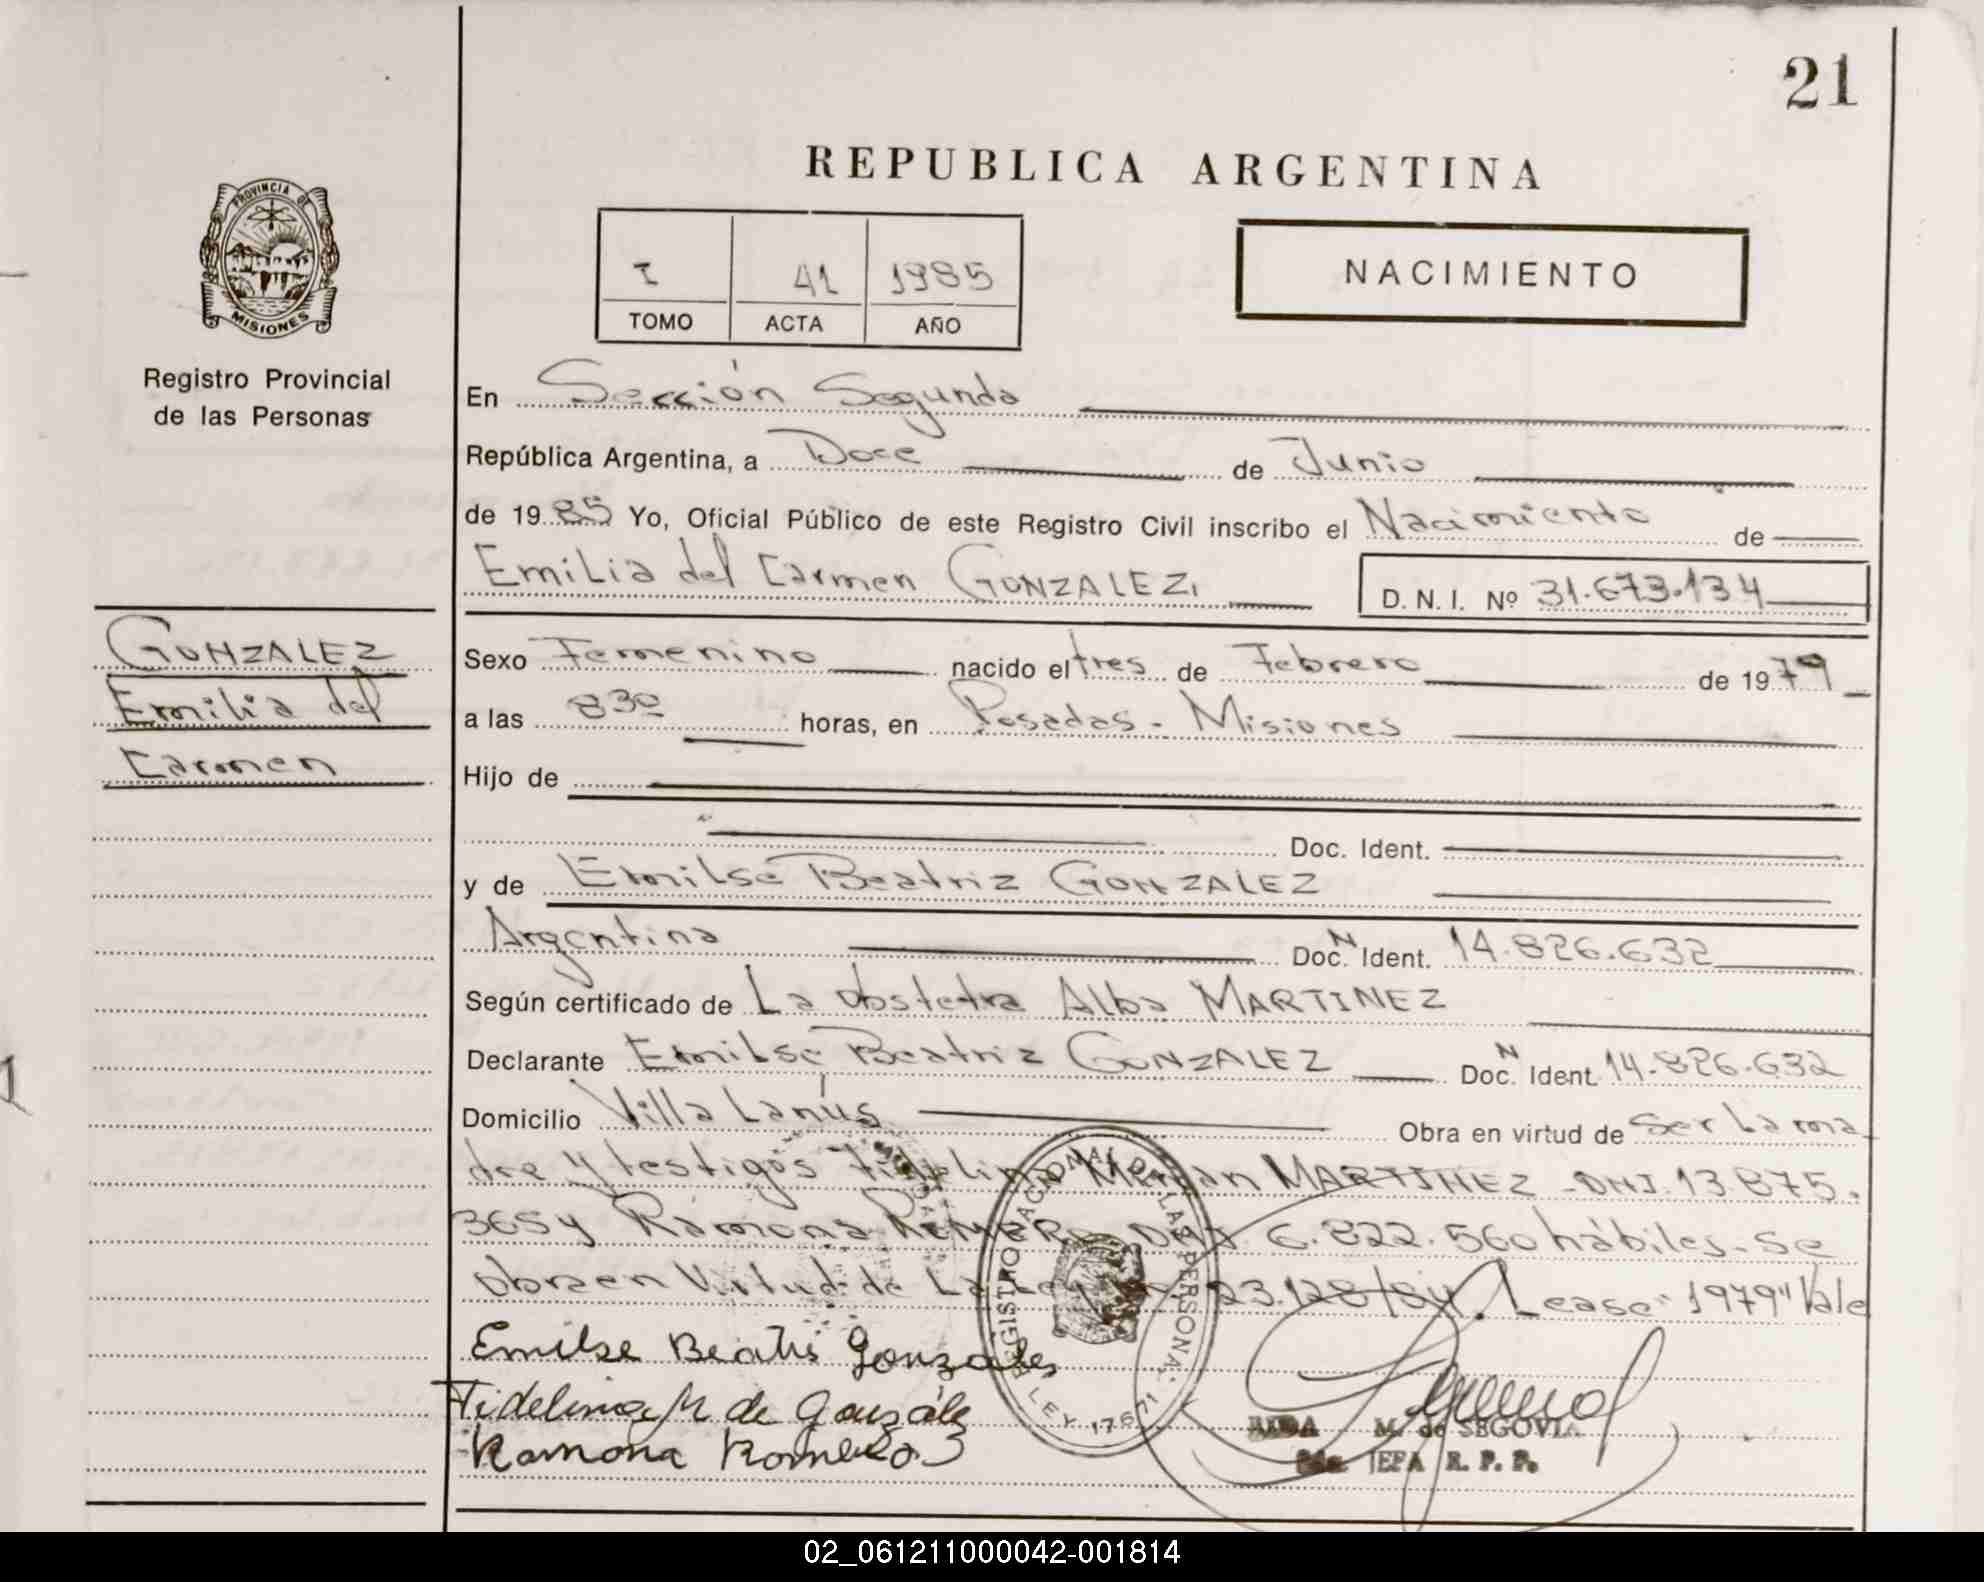 21
REPUBLICA ARGENTINA
PROVINCIA DE
MISIONES
I 41 1985
TOMO ACTA AÑO
NACIMIENTO
Registro Provincial
de las Personas
En Sección Segunda
República Argentina, a Doce de Junio
de 1985 Yo, Oficial Público de este Registro Civil inscribo el Nacimiento de
Emilia del Carmen GONZALEZ,
D. N. I. Nº 31.673.134
GONZALEZ
Emilia del
Carmen
Sexo Femenino nacido el tres de Febrero de 1979
a las 830 horas, en Posadas - Misiones
Hijo de
Doc. Ident.
y de Emilse Beatriz GONZALEZ
Argentina Doc. N Ident. 14.826.632
Según certificado de La obstetra Alba MARTINEZ
Declarante Emilse Beatriz GONZALEZ Doc. N Ident. 14.826.632
Domicilio Villa Lanús Obra en virtud de ser La ma
dre y testigos Fidelina MARTINEZ - DNI. 13.875.
365 y Ramona 6.822.560 hábiles. Se
obra en Virtud de La Ley 23.128/84. Lease "1979" Vale
REGISTRO NACIONAL DE LAS PERSONAS
LEY 17671
Emilse Beatris Gonzales
Fidelina M de Gonzále
Ramona Romero
M. de SEGOVIA
JEFA R. P. P.
02_061211000042-001814